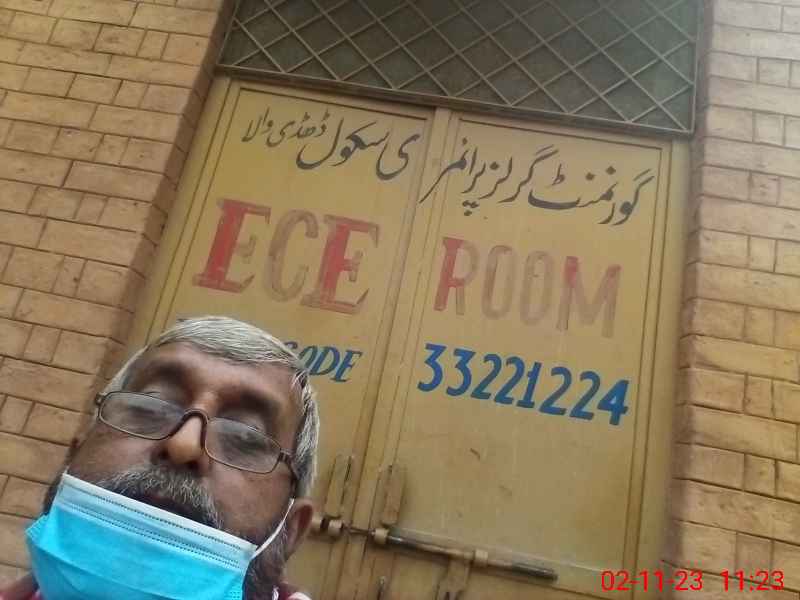 گورنمنٹ گرلز پرائمری سکول ڈھڈی والا
ECE ROOM
CODE 33221224
02-11-23 11:23